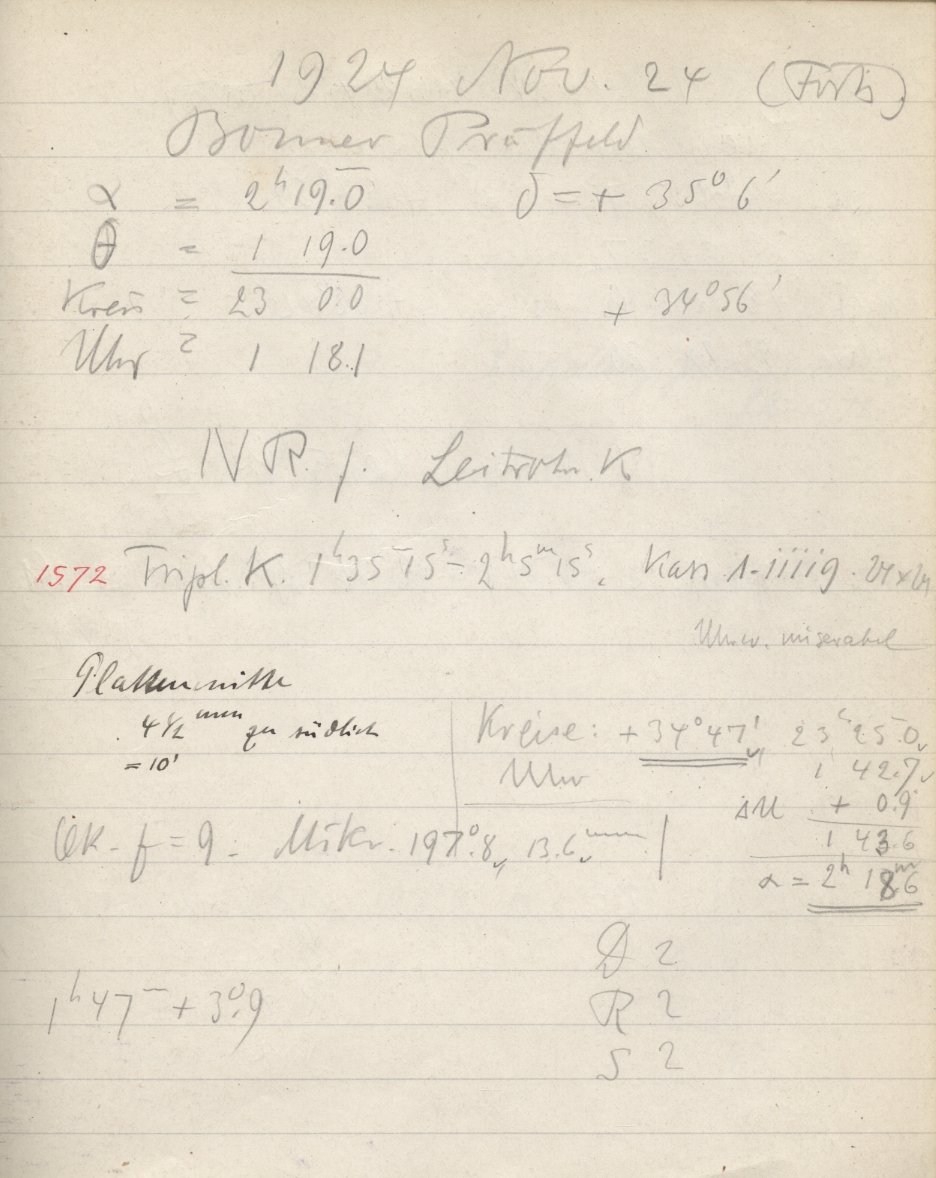 1924 Nov. 24 (Forts.)
Bonner Prüffeld
α = 2h 19.0 δ = + 35° 6'
θ = 1 19.0
Kreis = 23 0.0 + 34° 56'
Uhr = 1 18.1
Leitrohr K
1572 Tripl. K. 1h 35m 15s - 2h 5m 15s. 24x24
Uhrw. miserabel
Plattenmitte
4 1/2 mm zu südlich
= 10'
Kreise: + 34° 47' 23h 25m.0
Uhr 1 42.7
ΔU + 0.9
1 43.6
α = 2h 18m.6
Ok - f = 9 - Mikr. 197°.8, 13.6mm
D 2
1h 47m + 3°.9
R 2
S 2